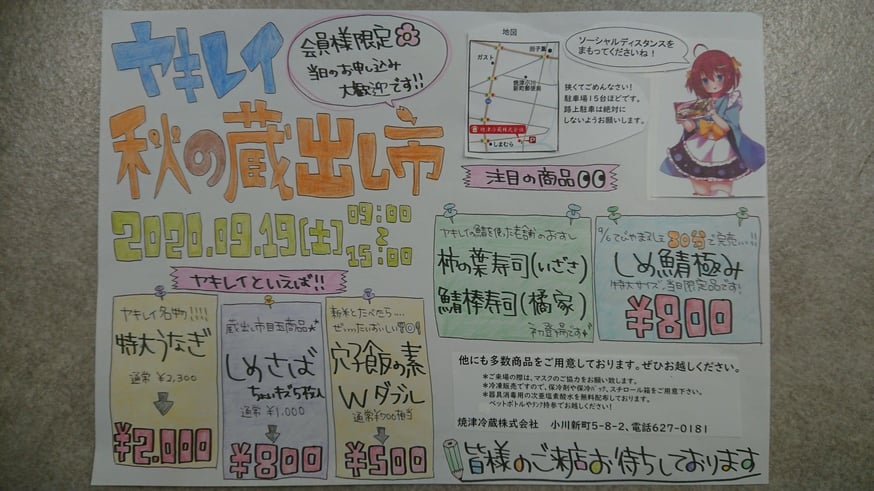 ヤキレイ
秋の蔵出し市
会員様限定
当日のお申し込み
大歓迎です!!
2020.09.19(土)
09:00
〜
15:00
地図
ガスト
田子重
焼津小川
新町郵便局
焼津冷蔵株式会社
P
しまむら
ソーシャルディスタンスを
まもってくださいね!
狭くてごめんなさい!
駐車場15台ほどです。
路上駐車は絶対に
しないようお願いします。
注目の商品
ヤキレイの鯖を使った老舗のおすし
柿の葉寿司(いざさ)
鯖棒寿司(橘家)
初登場です
30分で完売...!!
しめ鯖極み
特大サイズ、当日限定品です!
¥800
ヤキレイといえば!!
ヤキレイ名物!!!!
特大うなぎ
通常 ¥2,300
¥2.000
蔵出し市目玉商品
しめさば
ちょいキズ5枚入
通常 ¥1.000
¥800
新米とたべたら....
穴子飯の素
Wダブル
通常¥700相当
¥500
他にも多数商品をご用意しております。ぜひお越しください。
*ご来場の際は、マスクのご協力をお願い致します。
*冷凍販売ですので、保冷剤や保冷バッグ、スチロール箱をご用意下さい。
*器具消毒用の次亜塩素酸水を無料配布しております。
ペットボトルやタンク持参でお越しください!
焼津冷蔵株式会社 小川新町5-8-2、電話627-0181
皆様のご来店お待ちしております